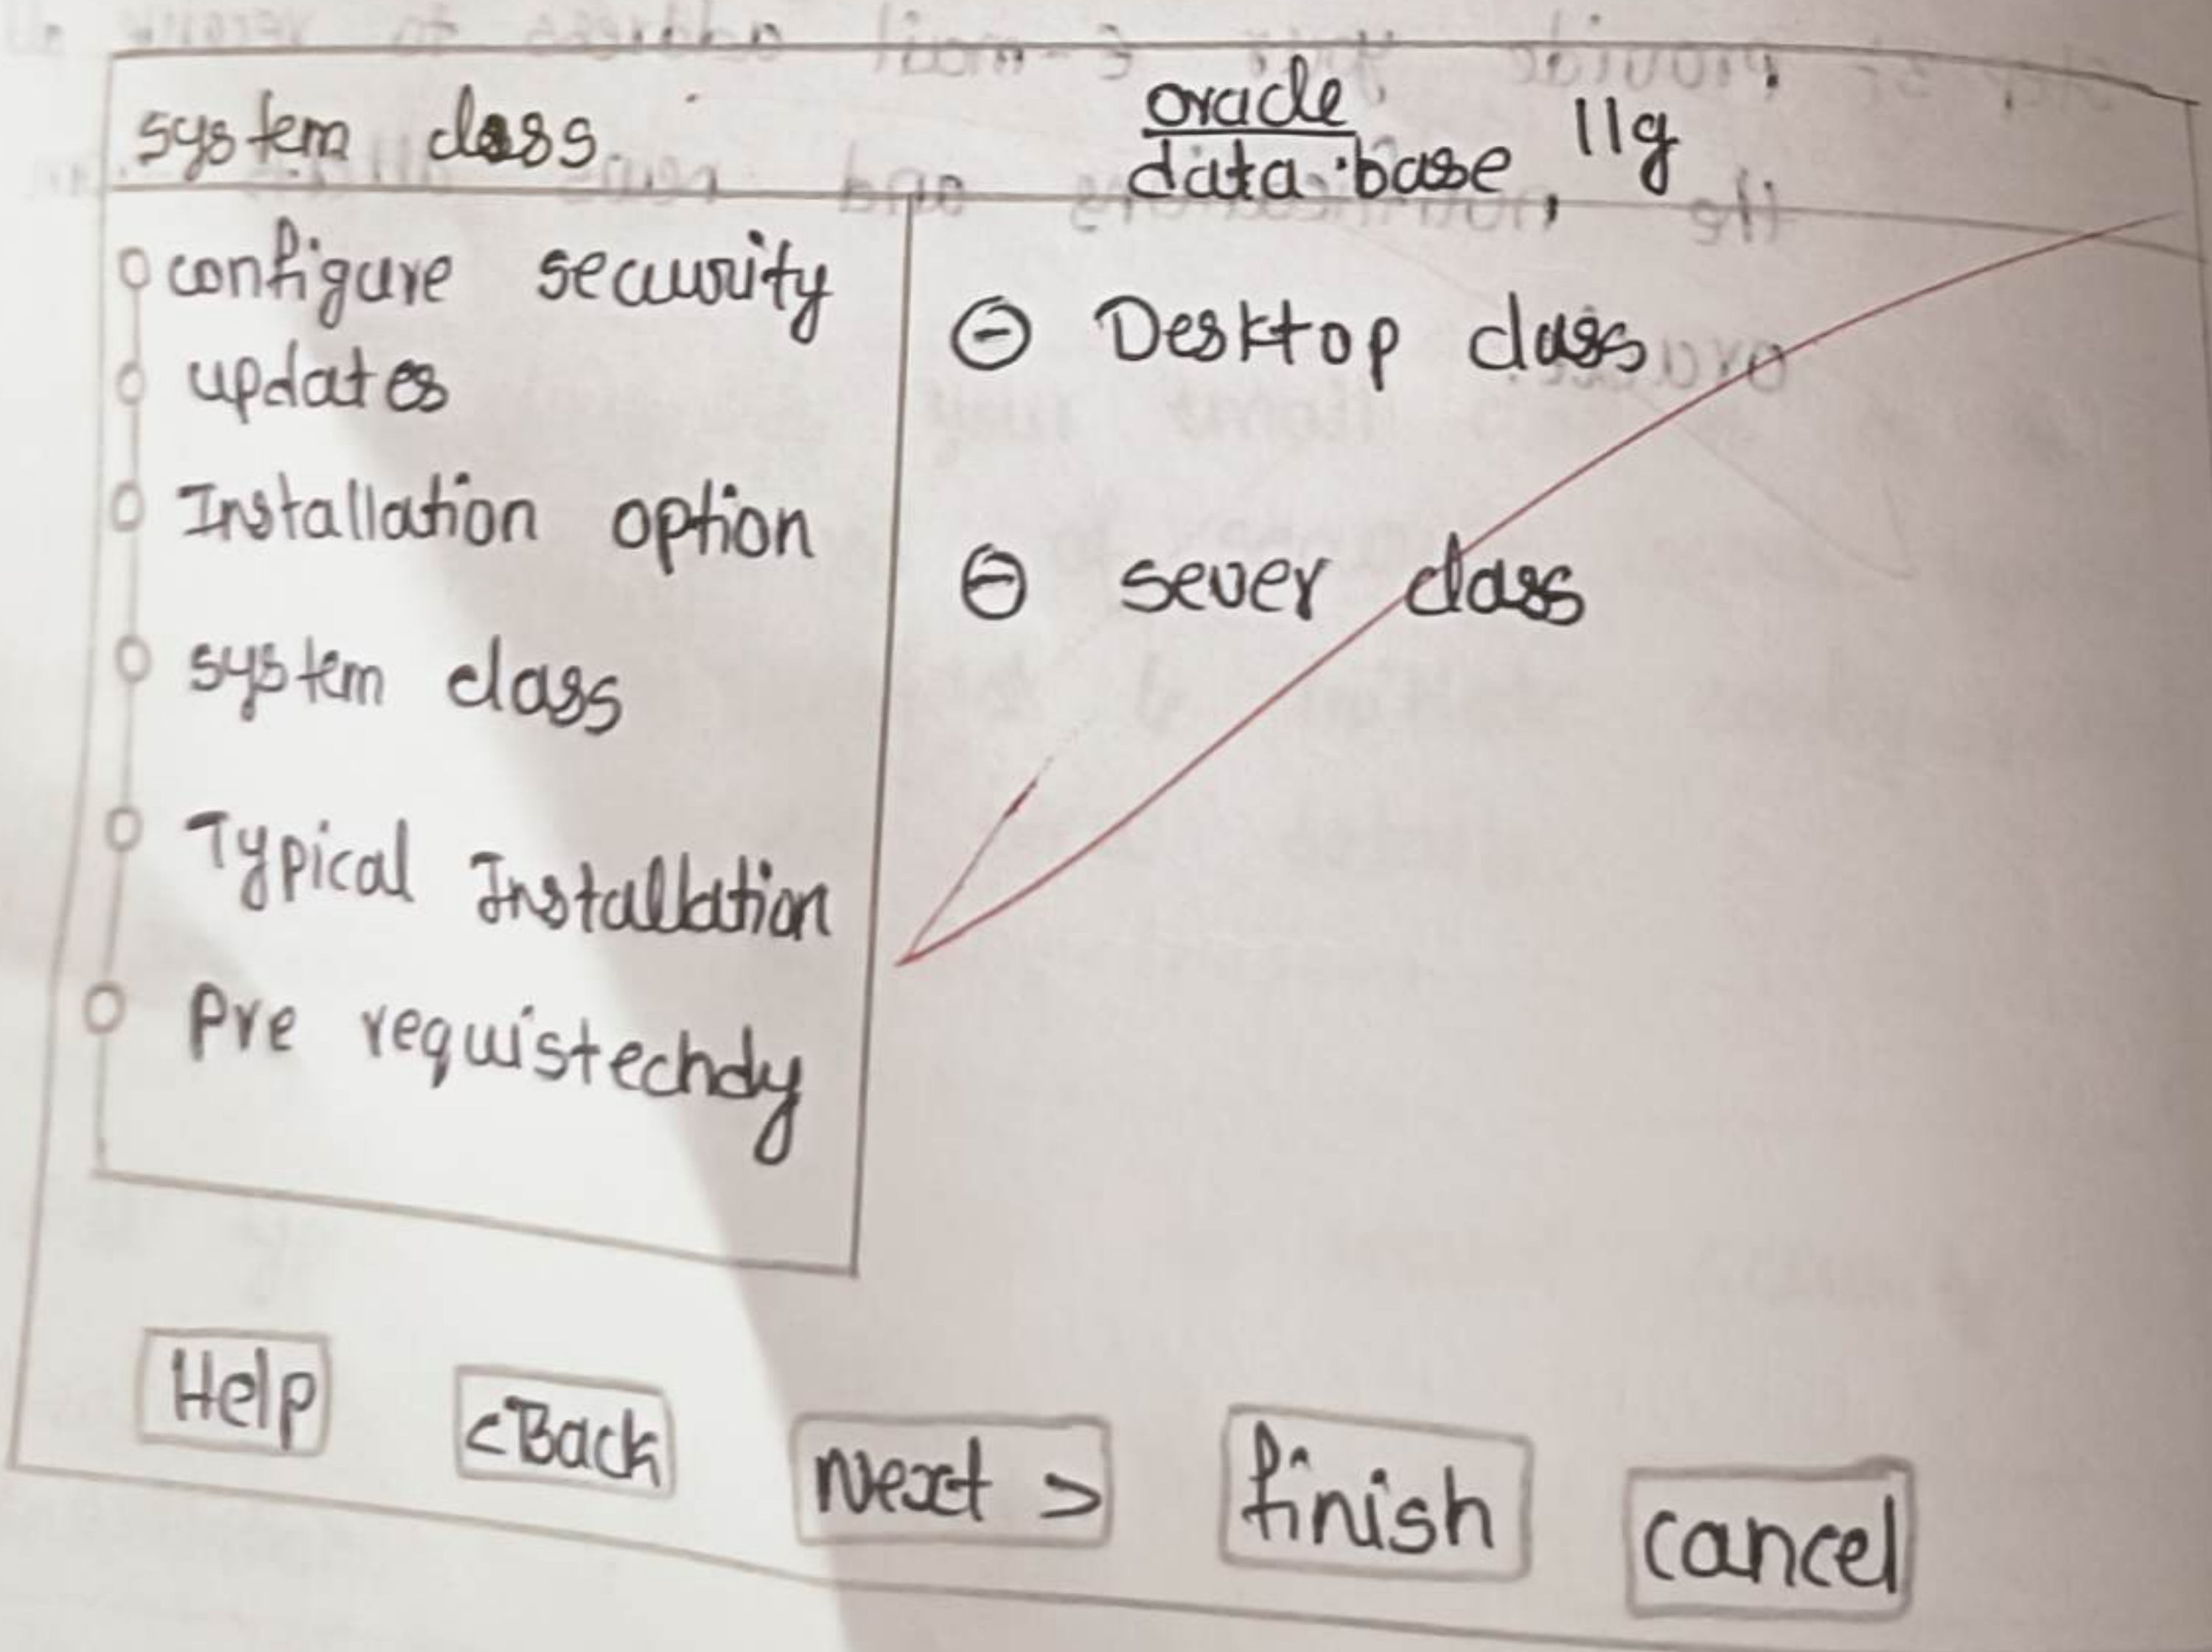 system class
oracle
data base 11g
configure security
updates
Installation option
system class
Typical Installation
Pre requistechdy
Desktop class
sever class
Help
<Back
Next >
finish
cancel